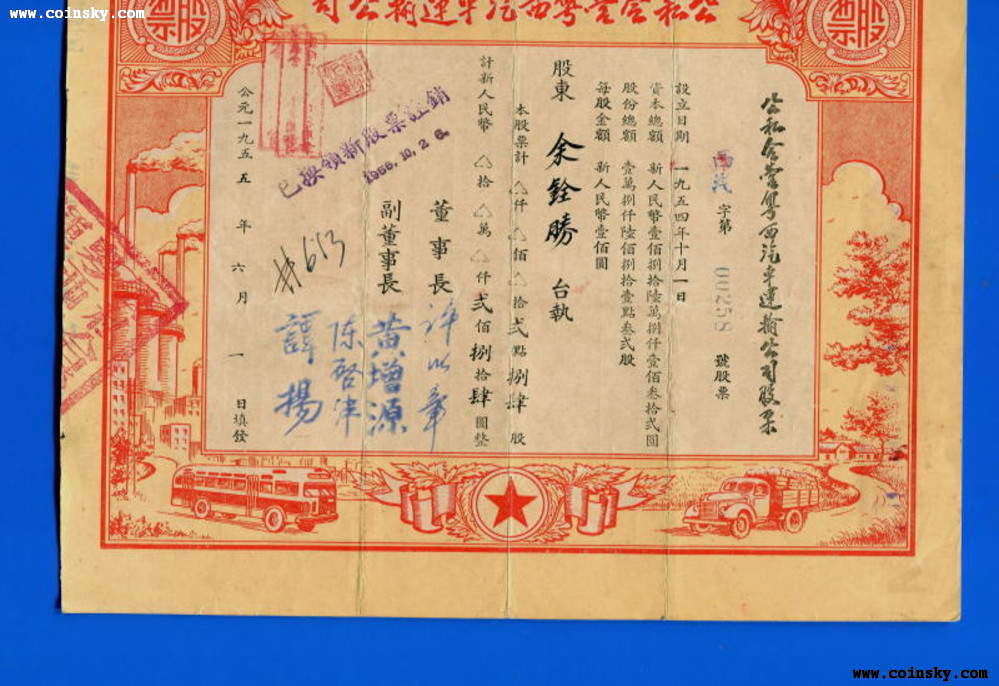 www.coinsky.com
www.coinsky.com
公私合營粤西汽車運輸公司
股票
股票
公私合營粤西汽車運輸公司股票
西汽 字第 00258 號股票
設立日期 一九五四年十月一日
資本總額 新人民幣壹佰捌拾陸萬捌仟壹佰叁拾弍圓
股份總額 壹萬捌仟陸佰捌拾壹點叁弍股
每股金額 新人民幣壹佰圓
股東 余銓勝 台執
本股票計 △仟△佰△拾弍點捌肆股
計新人民幣 △拾△萬△仟弍佰捌拾肆圓整
董事長 許以章
副董事長 黄增源
陈啓津
譚揚
已換領新股票註銷
1956.10.2 6.
#613
公元一九五五年六月一日填發
www.coinsky.com